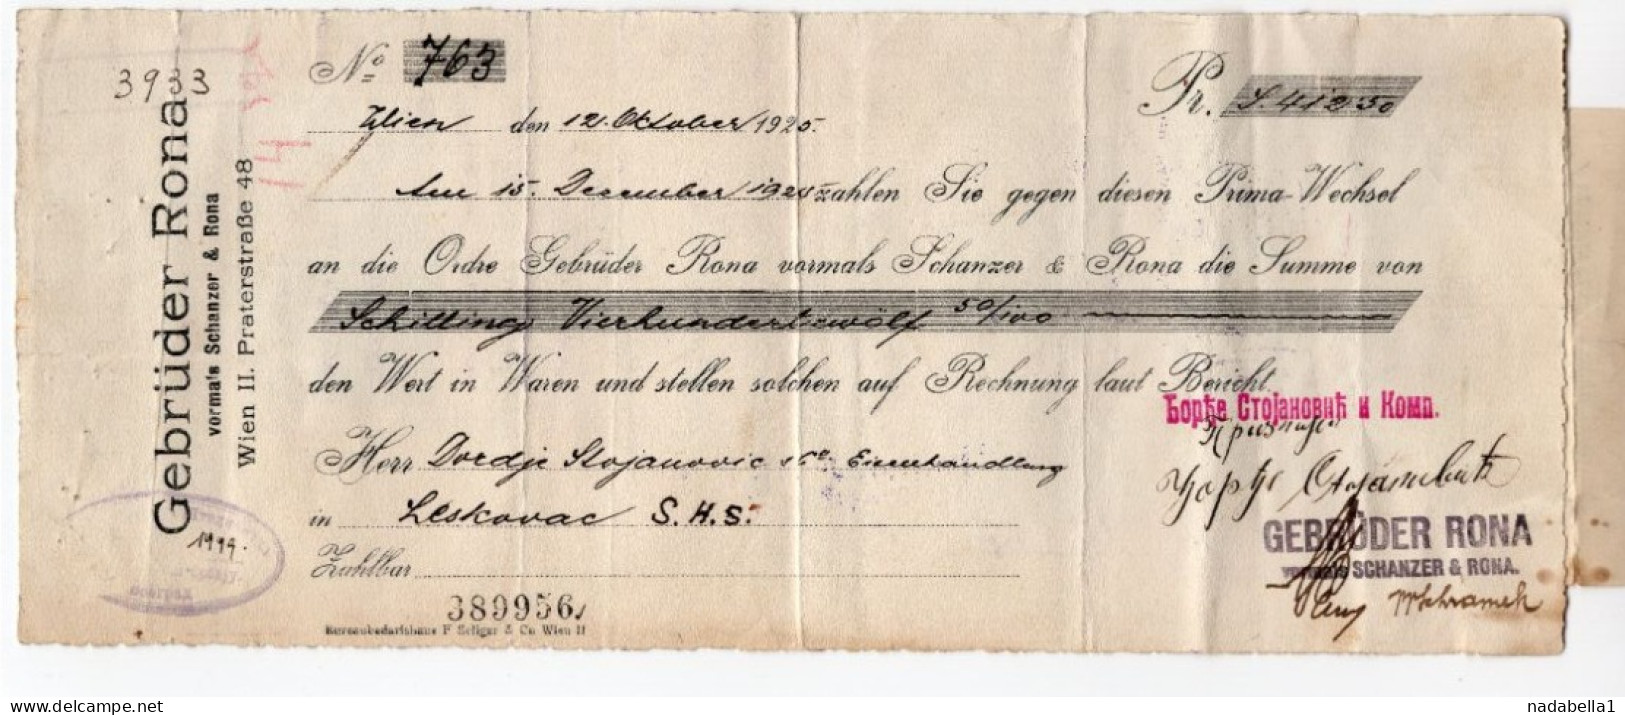 3933
Gebrüder Rona
vorma's Schanzer & Rona
Wien II. Praterstraße 48
1999.
No 763
Pr. S. 412 50
Wien den 12. Oktober 1925.
Am 15. December 1925 zahlen Sie gegen diesen Prima-Wechsel
an die Ordre Gebrüder Rona vormals Schanzer & Rona die Summe von
Schilling Vierhundertzwölf 50/100
den Wert in Waren und stellen solchen auf Rechnung laut Bericht
Ђорђе Стојановић и Комп.
Herr Dordje Stojanovic & Co Eisenhandlung
Ђорђе Стојановић
in Leskovac S.H.S.
GEBRÜDER RONA
SCHANZER & RONA.
Zahlbar
389956
Bureaubedarfshaus F Seliger & Co Wien II
delcampe.net
nadabella1